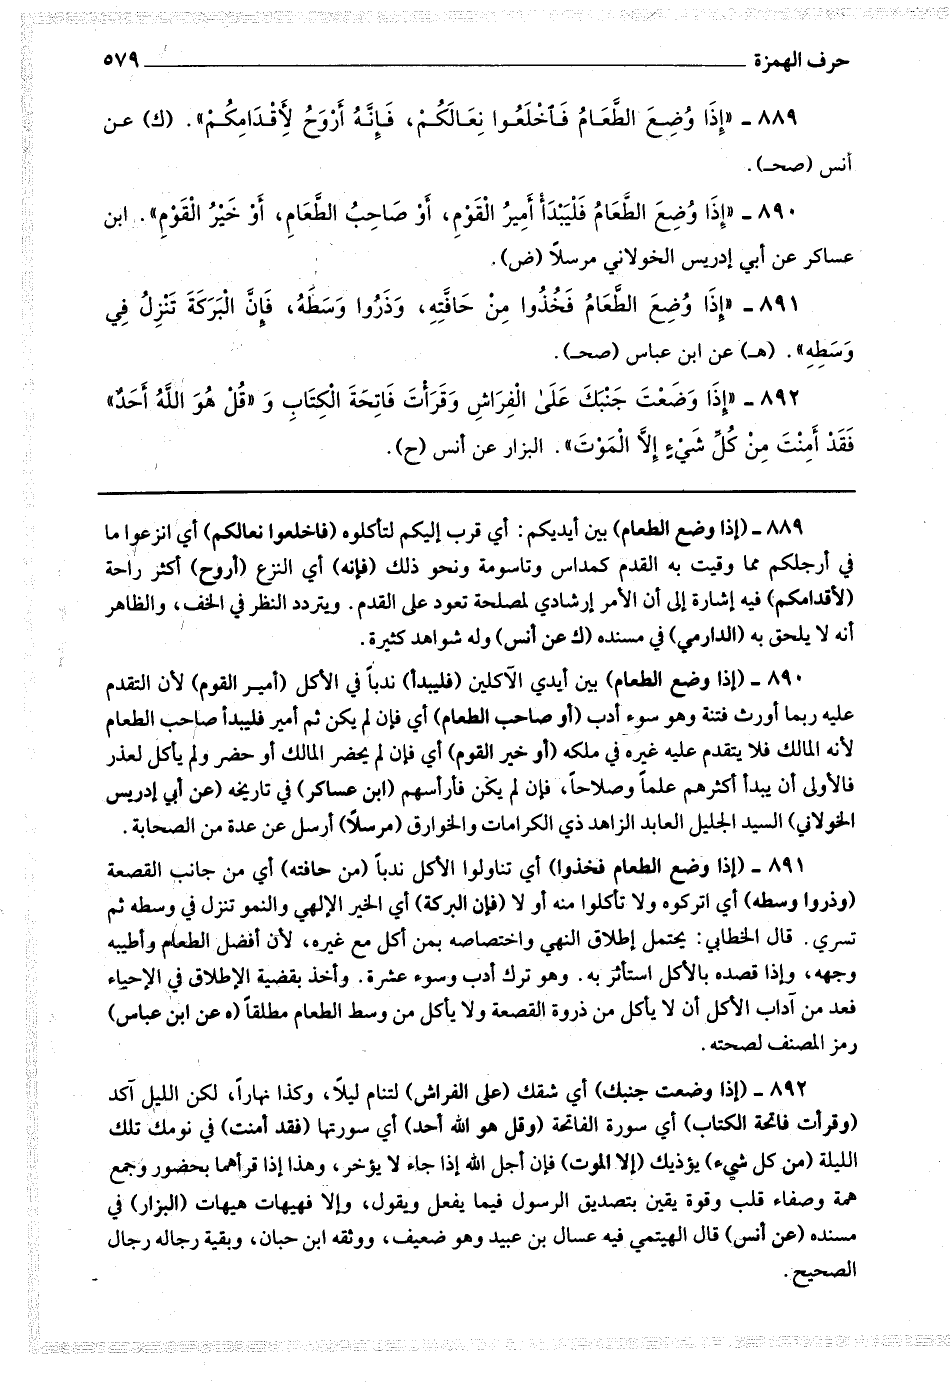 حرف الهمزة ٥٧٩
٨٨٩ ـ «إِذَا وُضِعَ الطَّعَامُ فَٱخْلَعُوا نِعَالَكُمْ، فَإِنَّهُ أَرْوَحُ لِأَقْدَامِكُمْ». (ك) عن
أنس (صحـ).
٨٩٠ ـ «إِذَا وُضِعَ الطَّعَامُ فَلْيَبْدَأْ أَمِيرُ الْقَوْمِ، أَوْ صَاحِبُ الطَّعَامِ، أَوْ خَيْرُ الْقَوْمِ». ابن
عساكر عن أبي إدريس الخولاني مرسلاً (ض).
٨٩١ ـ «إِذَا وُضِعَ الطَّعَامُ فَخُذُوا مِنْ حَافَّتِهِ، وَذَرُوا وَسَطَهُ، فَإِنَّ الْبَرَكَةَ تَنْزِلُ فِي
وَسَطِهِ». (هـ) عن ابن عباس (صحـ).
٨٩٢ ـ «إِذَا وَضَعْتَ جَنْبَكَ عَلَىٰ الْفِرَاشِ وَقَرَأْتَ فَاتِحَةَ الْكِتَابِ وَ «قُلْ هُوَ اللَّهُ أَحَدٌ»
فَقَدْ أَمِنْتَ مِنْ كُلِّ شَيْءٍ إِلَّا الْمَوْتَ». البزار عن أنس (ح).
٨٨٩ ـ (إذا وضع الطعام) بين أيديكم: أي قرب إليكم لتأكلوه (فاخلعوا نعالكم) أي انزعوا ما
في أرجلكم مما وقيت به القدم كمداس وتاسومة ونحو ذلك (فإنه) أي النزع (أروح) أكثر راحة
(لأقدامكم) فيه إشارة إلى أن الأمر إرشادي لمصلحة تعود على القدم. ويتردد النظر في الخف، والظاهر
أنه لا يلحق به (الدارمي) في مسنده (ك عن أنس) وله شواهد كثيرة.
٨٩٠ ـ (إذا وضع الطعام) بين أيدي الآكلين (فليبدأ) ندباً في الأكل (أمير القوم) لأن التقدم
عليه ربما أورث فتنة وهو سوء أدب (أو صاحب الطعام) أي فإن لم يكن ثم أمير فليبدأ صاحب الطعام
لأنه المالك فلا يتقدم عليه غيره في ملكه (أو خير القوم) أي فإن لم يحضر المالك أو حضر ولم يأكل لعذر
فالأولى أن يبدأ أكثرهم علماً وصلاحاً، فإن لم يكن فأرأسهم (ابن عساكر) في تاريخه (عن أبي إدريس
الخولاني) السيد الجليل العابد الزاهد ذي الكرامات والخوارق (مرسلاً) أرسل عن عدة من الصحابة.
٨٩١ ـ (إذا وضع الطعام فخذوا) أي تناولوا الأكل ندباً (من حافته) أي من جانب القصعة
(وذروا وسطه) أي اتركوه ولا تأكلوا منه أو لا (فإن البركة) أي الخير الإلهي والنمو تنزل في وسطه ثم
تسري. قال الخطابي: يحتمل إطلاق النهي واختصاصه بمن أكل مع غيره، لأن أفضل الطعام وأطيبه
وجهه، وإذا قصده بالأكل استأثر به. وهو ترك أدب وسوء عشرة. وأخذ بقضية الإطلاق في الإحياء
فعد من آداب الأكل أن لا يأكل من ذروة القصعة ولا يأكل من وسط الطعام مطلقاً (ه عن ابن عباس)
رمز المصنف لصحته.
٨٩٢ ـ (إذا وضعت جنبك) أي شقك (على الفراش) لتنام ليلاً، وكذا نهاراً، لكن الليل آكد
(وقرأت فاتحة الكتاب) أي سورة الفاتحة (وقل هو الله أحد) أي سورتها (فقد أمنت) في نومك تلك
الليلة (من كل شيء) يؤذيك (إلا الموت) فإن أجل الله إذا جاء لا يؤخر، وهذا إذا قرأهما بحضور وجمع
همة وصفاء قلب وقوة يقين بتصديق الرسول فيما يفعل ويقول، وإلا فهيهات هيهات (البزار) في
مسنده (عن أنس) قال الهيتمي فيه عسال بن عبيد وهو ضعيف، ووثقه ابن حبان، وبقية رجاله رجال
الصحيح.